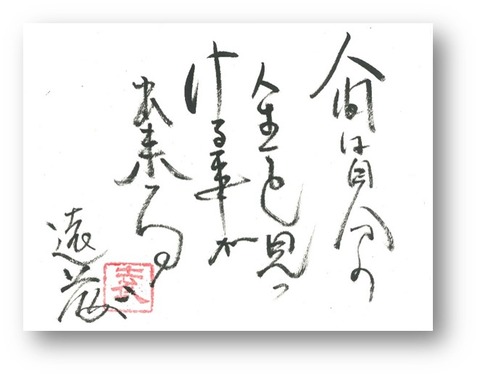 人間は自分の
人生も見つ
ける事が
出来る
遠藤